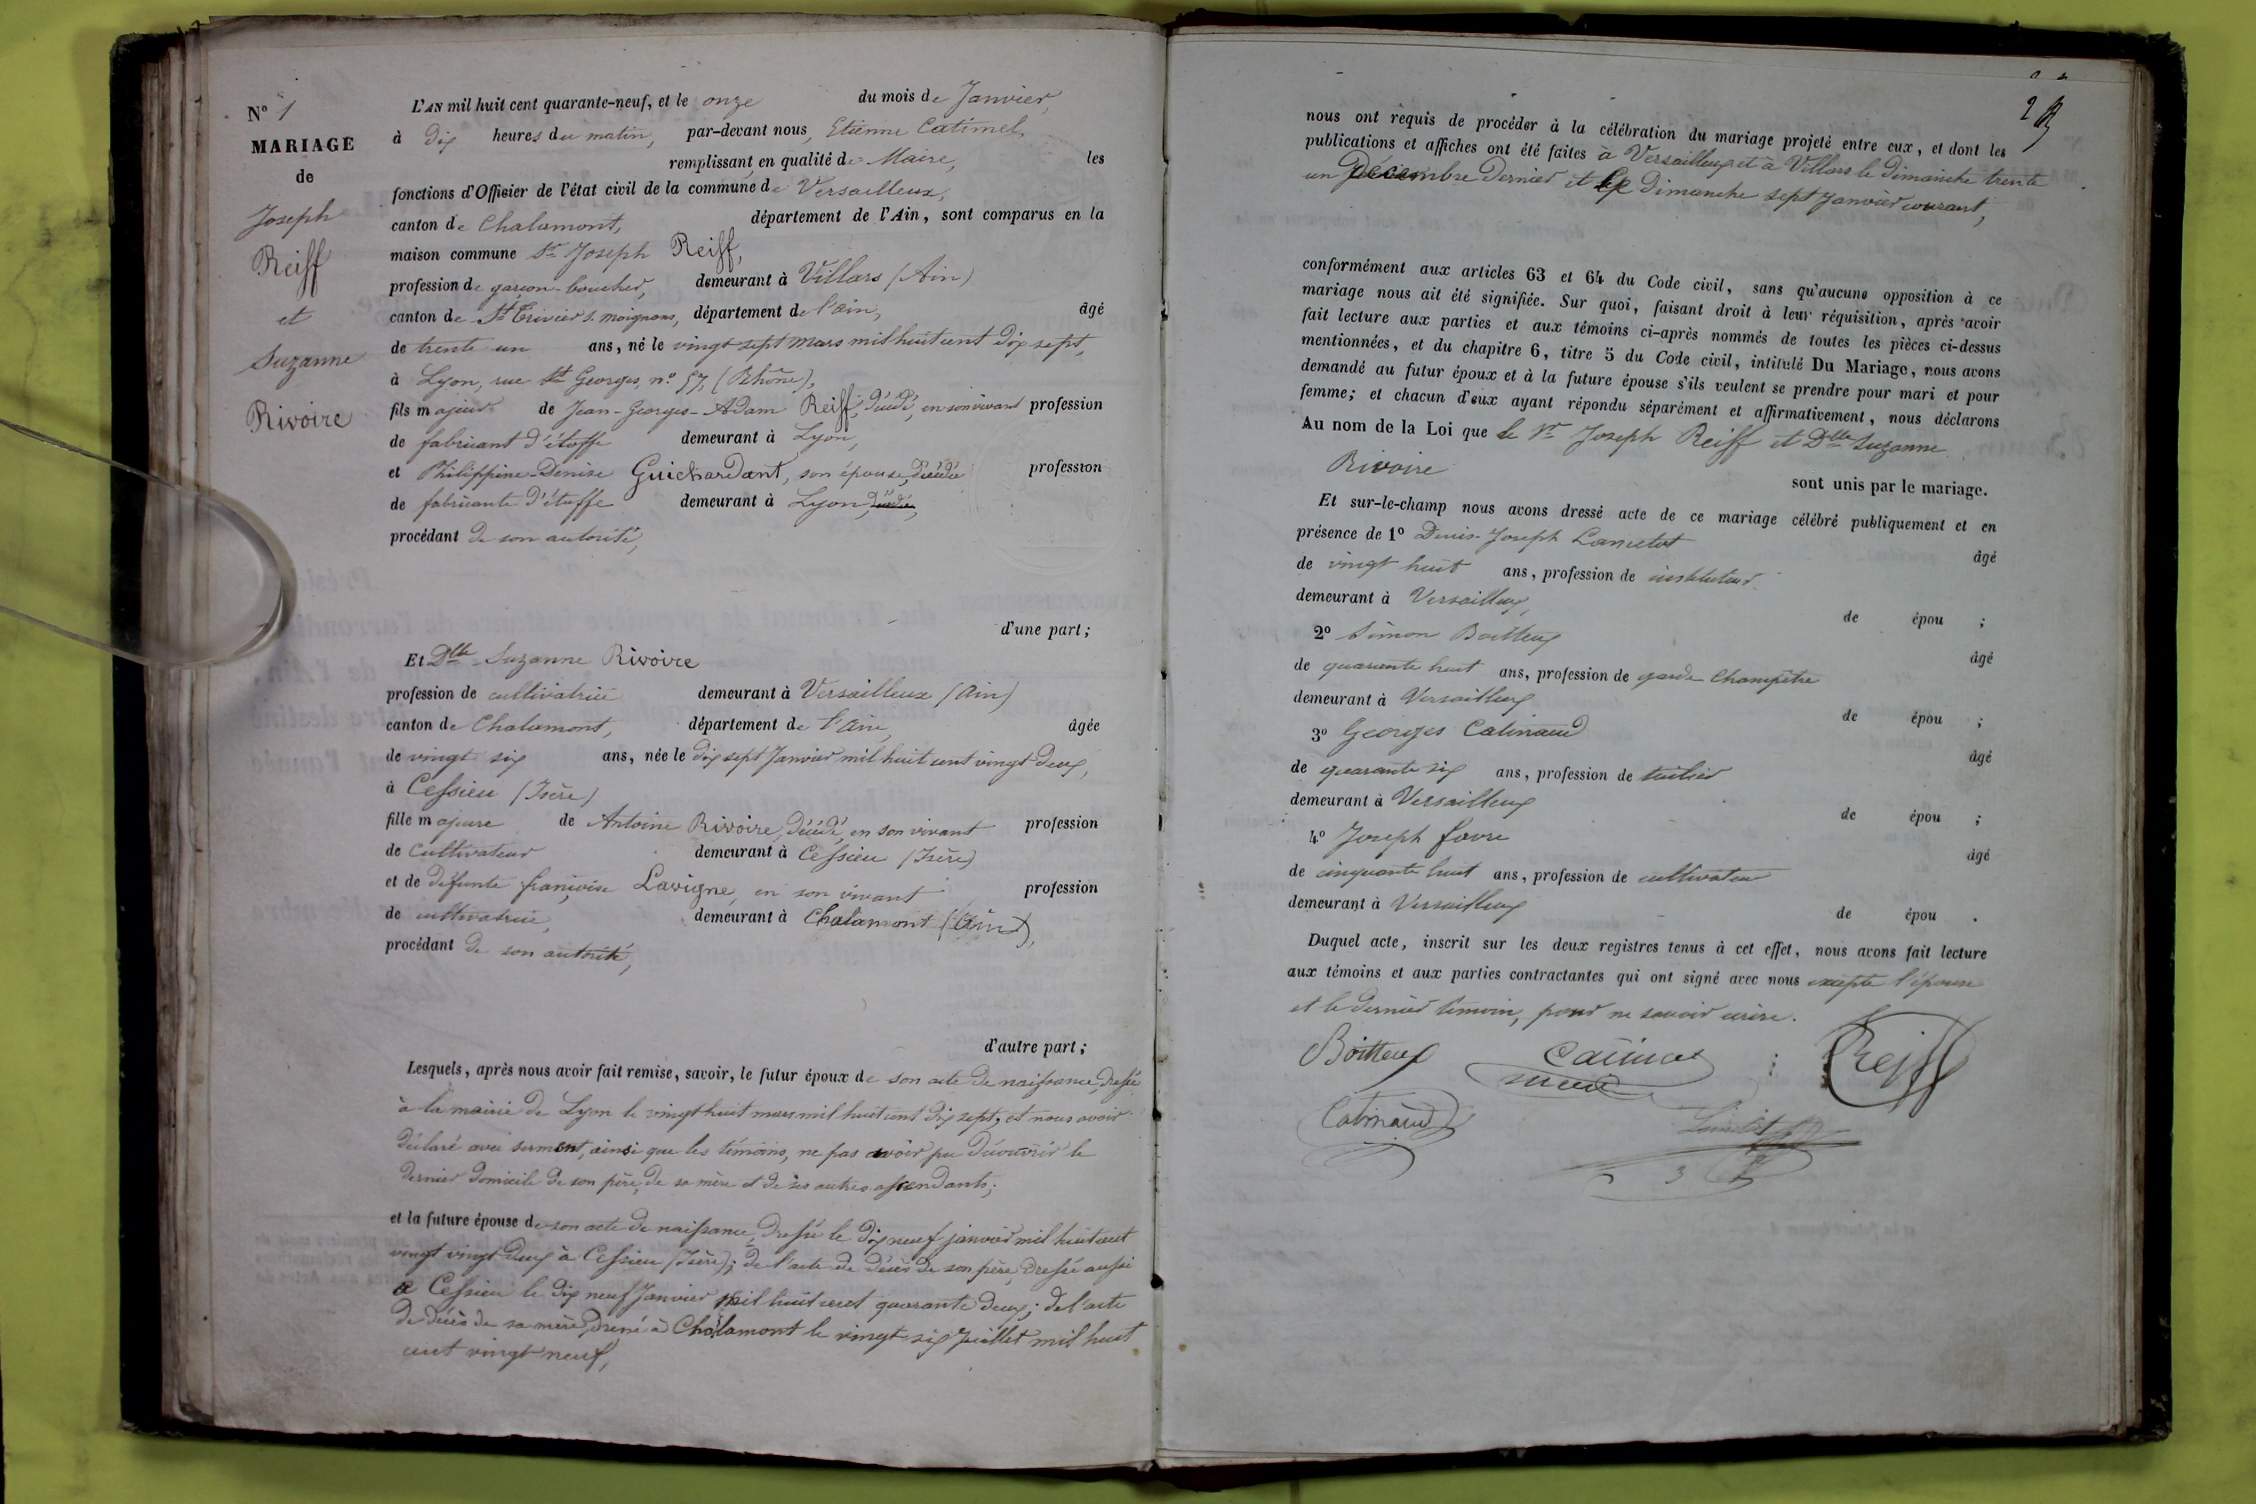 N.º 1
MARIAGE
de
Joseph
Reiff
et
Suzanne
Rivoire
L'AN mil huit cent quarante-neuf, et le onze du mois de Janvier,
à dix heures du matin, par-devant nous, Etienne Catimel,
remplissant, en qualité de Maire, les
fonctions d'Officier de l'état civil de la commune de Versailleux,
canton de Chalamont, département de l'Ain, sont comparus en la
maison commune Sr Joseph Reiff,
profession de garçon-boucher, demeurant à Villars (Ain)
canton de St Trivier s. moignans, département de l'ain, âgé
de trente un ans, né le vingt sept mars mil huit cent dix sept,
à Lyon, rue St Georges, n.º 57, (Rhône),
fils majeur de Jean-Georges-Adam Reiff, décédé, en son vivant profession
de fabricant d'étoffe demeurant à Lyon,
et Philippine Denise Guichardant, son épouse, décédée profession
de fabricante d'étoffe demeurant à Lyon, décédée,
procédant de son autorité,
d'une part;
Et Dlle Suzanne Rivoire
profession de cultivatrice demeurant à Versailleux (ain)
canton de Chalamont, département de l'ain, âgée
de vingt six ans, née le dix sept Janvier mil huit cent vingt deux,
à Cessieu (Isère)
fille majeure de Antoine Rivoire, décédé, en son vivant profession
de cultivateur demeurant à Cessieu (Isère)
et de défunte françoise Lavigne, en son vivant profession
de cultivatrice, demeurant à Chalamont (Ain),
procédant de son autorité,
d'autre part;
Lesquels, après nous avoir fait remise, savoir, le futur époux de son acte de naissance, dressé
à la mairie de Lyon le vingt huit mars mil huit cent dix sept, et nous avoir
déclaré avec serment, ainsi que les témoins, ne pas avoir pu découvrir le
dernier domicile de son père, de sa mère et de ses autres ascendants;
et la future épouse de son acte de naissance, dressé le dix neuf janvier mil huit cent
vingt vingt deux à Cessieu (Isère); de l'acte de décès de son père, dressé aussi
à Cessieu le dix neuf Janvier mil huit cent quarante deux; de l'acte
de décès de sa mère, dressé à Chalamont le vingt six Juillet mil huit
cent vingt neuf,
2
nous ont requis de procéder à la célébration du mariage projeté entre eux, et dont les
publications et affiches ont été faites à Versailleux et à Villars le Dimanche trente
un Décembre dernier et le Dimanche sept Janvier courant,
conformément aux articles 63 et 64 du Code civil, sans qu'aucune opposition à ce
mariage nous ait été signifiée. Sur quoi, faisant droit à leur réquisition, après avoir
fait lecture aux parties et aux témoins ci-après nommés de toutes les pièces ci-dessus
mentionnées, et du chapitre 6, titre 5 du Code civil, intitulé Du Mariage, nous avons
demandé au futur époux et à la future épouse s'ils veulent se prendre pour mari et pour
femme; et chacun d'eux ayant répondu séparément et affirmativement, nous déclarons
Au nom de la Loi que le Sr Joseph Reiff et Dlle Suzanne
Rivoire
sont unis par le mariage.
Et sur-le-champ nous avons dressé acte de ce mariage célébré publiquement et en
présence de 1º Denis-Joseph Lancelot âgé
de vingt huit ans, profession de instituteur
demeurant à Versailleux, de épou ;
2º Simon Boitteux âgé
de quarante huit ans, profession de garde Champêtre
demeurant à Versailleux de épou ;
3º Georges Catinaud âgé
de quarante six ans, profession de tuilier
demeurant à Versailleux de épou ;
4º Joseph favre âgé
de cinquante huit ans, profession de cultivateur
demeurant à Versailleux de épou .
Duquel acte, inscrit sur les deux registres tenus à cet effet, nous avons fait lecture
aux témoins et aux parties contractantes qui ont signé avec nous excepté l'épouse
et le dernier témoin, pour ne savoir écrire.
Boitteux Catimel Reiff
maire
Catinaud Lancelot